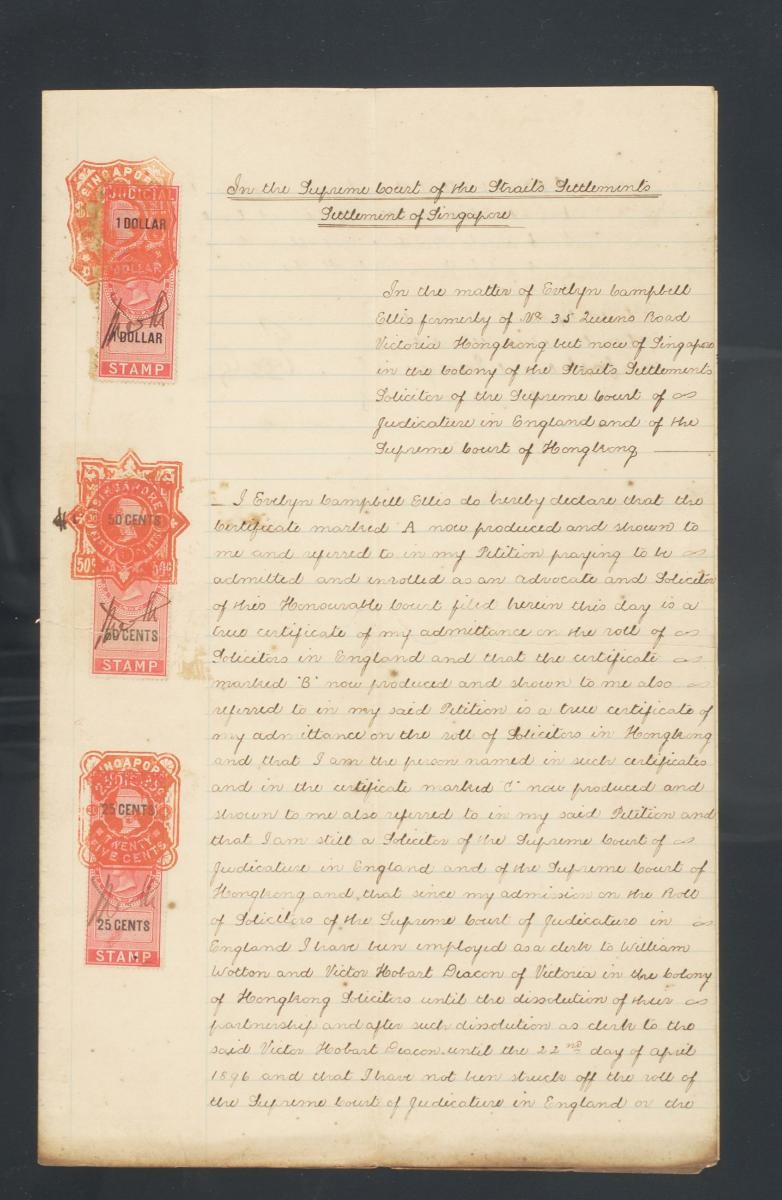 In the Supreme Court of the Straits Settlements
Settlement of Singapore
In the matter of Evelyn Campbell
Ellis formerly of No. 35 Queens Road
Victoria Hongkong but now of Singapore
in the Colony of the Straits Settlements
Solicitor of the Supreme Court of
Judicature in England and of the
Supreme Court of Hongkong
I Evelyn Campbell Ellis do hereby declare that the
Certificate marked A now produced and shown to
me and referred to in my Petition praying to be
admitted and enrolled as an Advocate and Solicitor
of this Honourable Court filed herein this day is a
true certificate of my admittance on the roll of
Solicitors in England and that the certificate
marked "B" now produced and shown to me also
referred to in my said Petition is a true certificate of
my admittance on the roll of Solicitors in Hongkong
and that I am the person named in such certificates
and in the certificate marked "C" now produced and
shown to me also referred to in my said Petition and
that I am still a Solicitor of the Supreme Court of
Judicature in England and of the Supreme Court of
Hongkong and that since my admission on the Roll
of Solicitors of the Supreme Court of Judicature in
England I have been employed as a clerk to William
Wotton and Victor Hobart Deacon of Victoria in the Colony
of Hongkong Solicitors until the dissolution of their
partnership and after such dissolution as clerk to the
said Victor Hobart Deacon until the 22nd day of April
1896 and that I have not been struck off the roll of
the Supreme Court of Judicature in England or the
SINGAPORE
JUDICIAL
1 DOLLAR
DOLLAR
1 DOLLAR
STAMP
SINGAPORE
50 CENTS
50c
50c
50 CENTS
STAMP
SINGAPORE
25 CENTS
TWENTY
FIVE CENTS
25 CENTS
STAMP